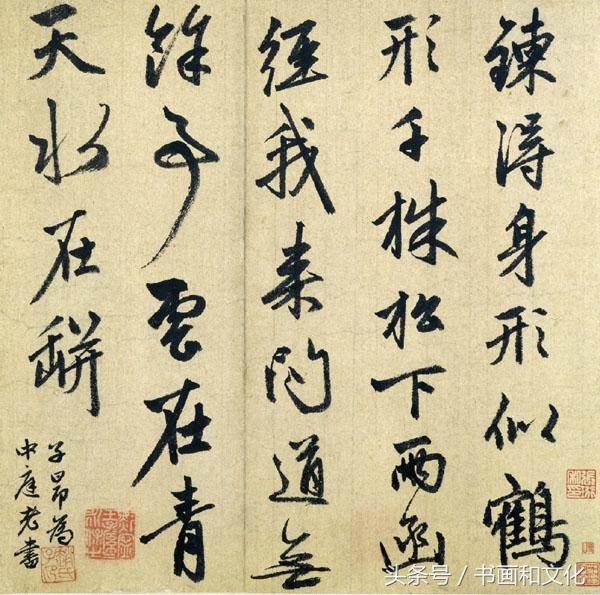 鍊得身形似鶴
形千株松下兩函
經我来問道無
餘事雲在青
天水在缾
子昂為
中庭老書
头条号 / 书画和文化